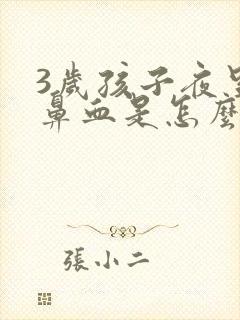 3歲孩子夜
鼻血是怎麼
張小二